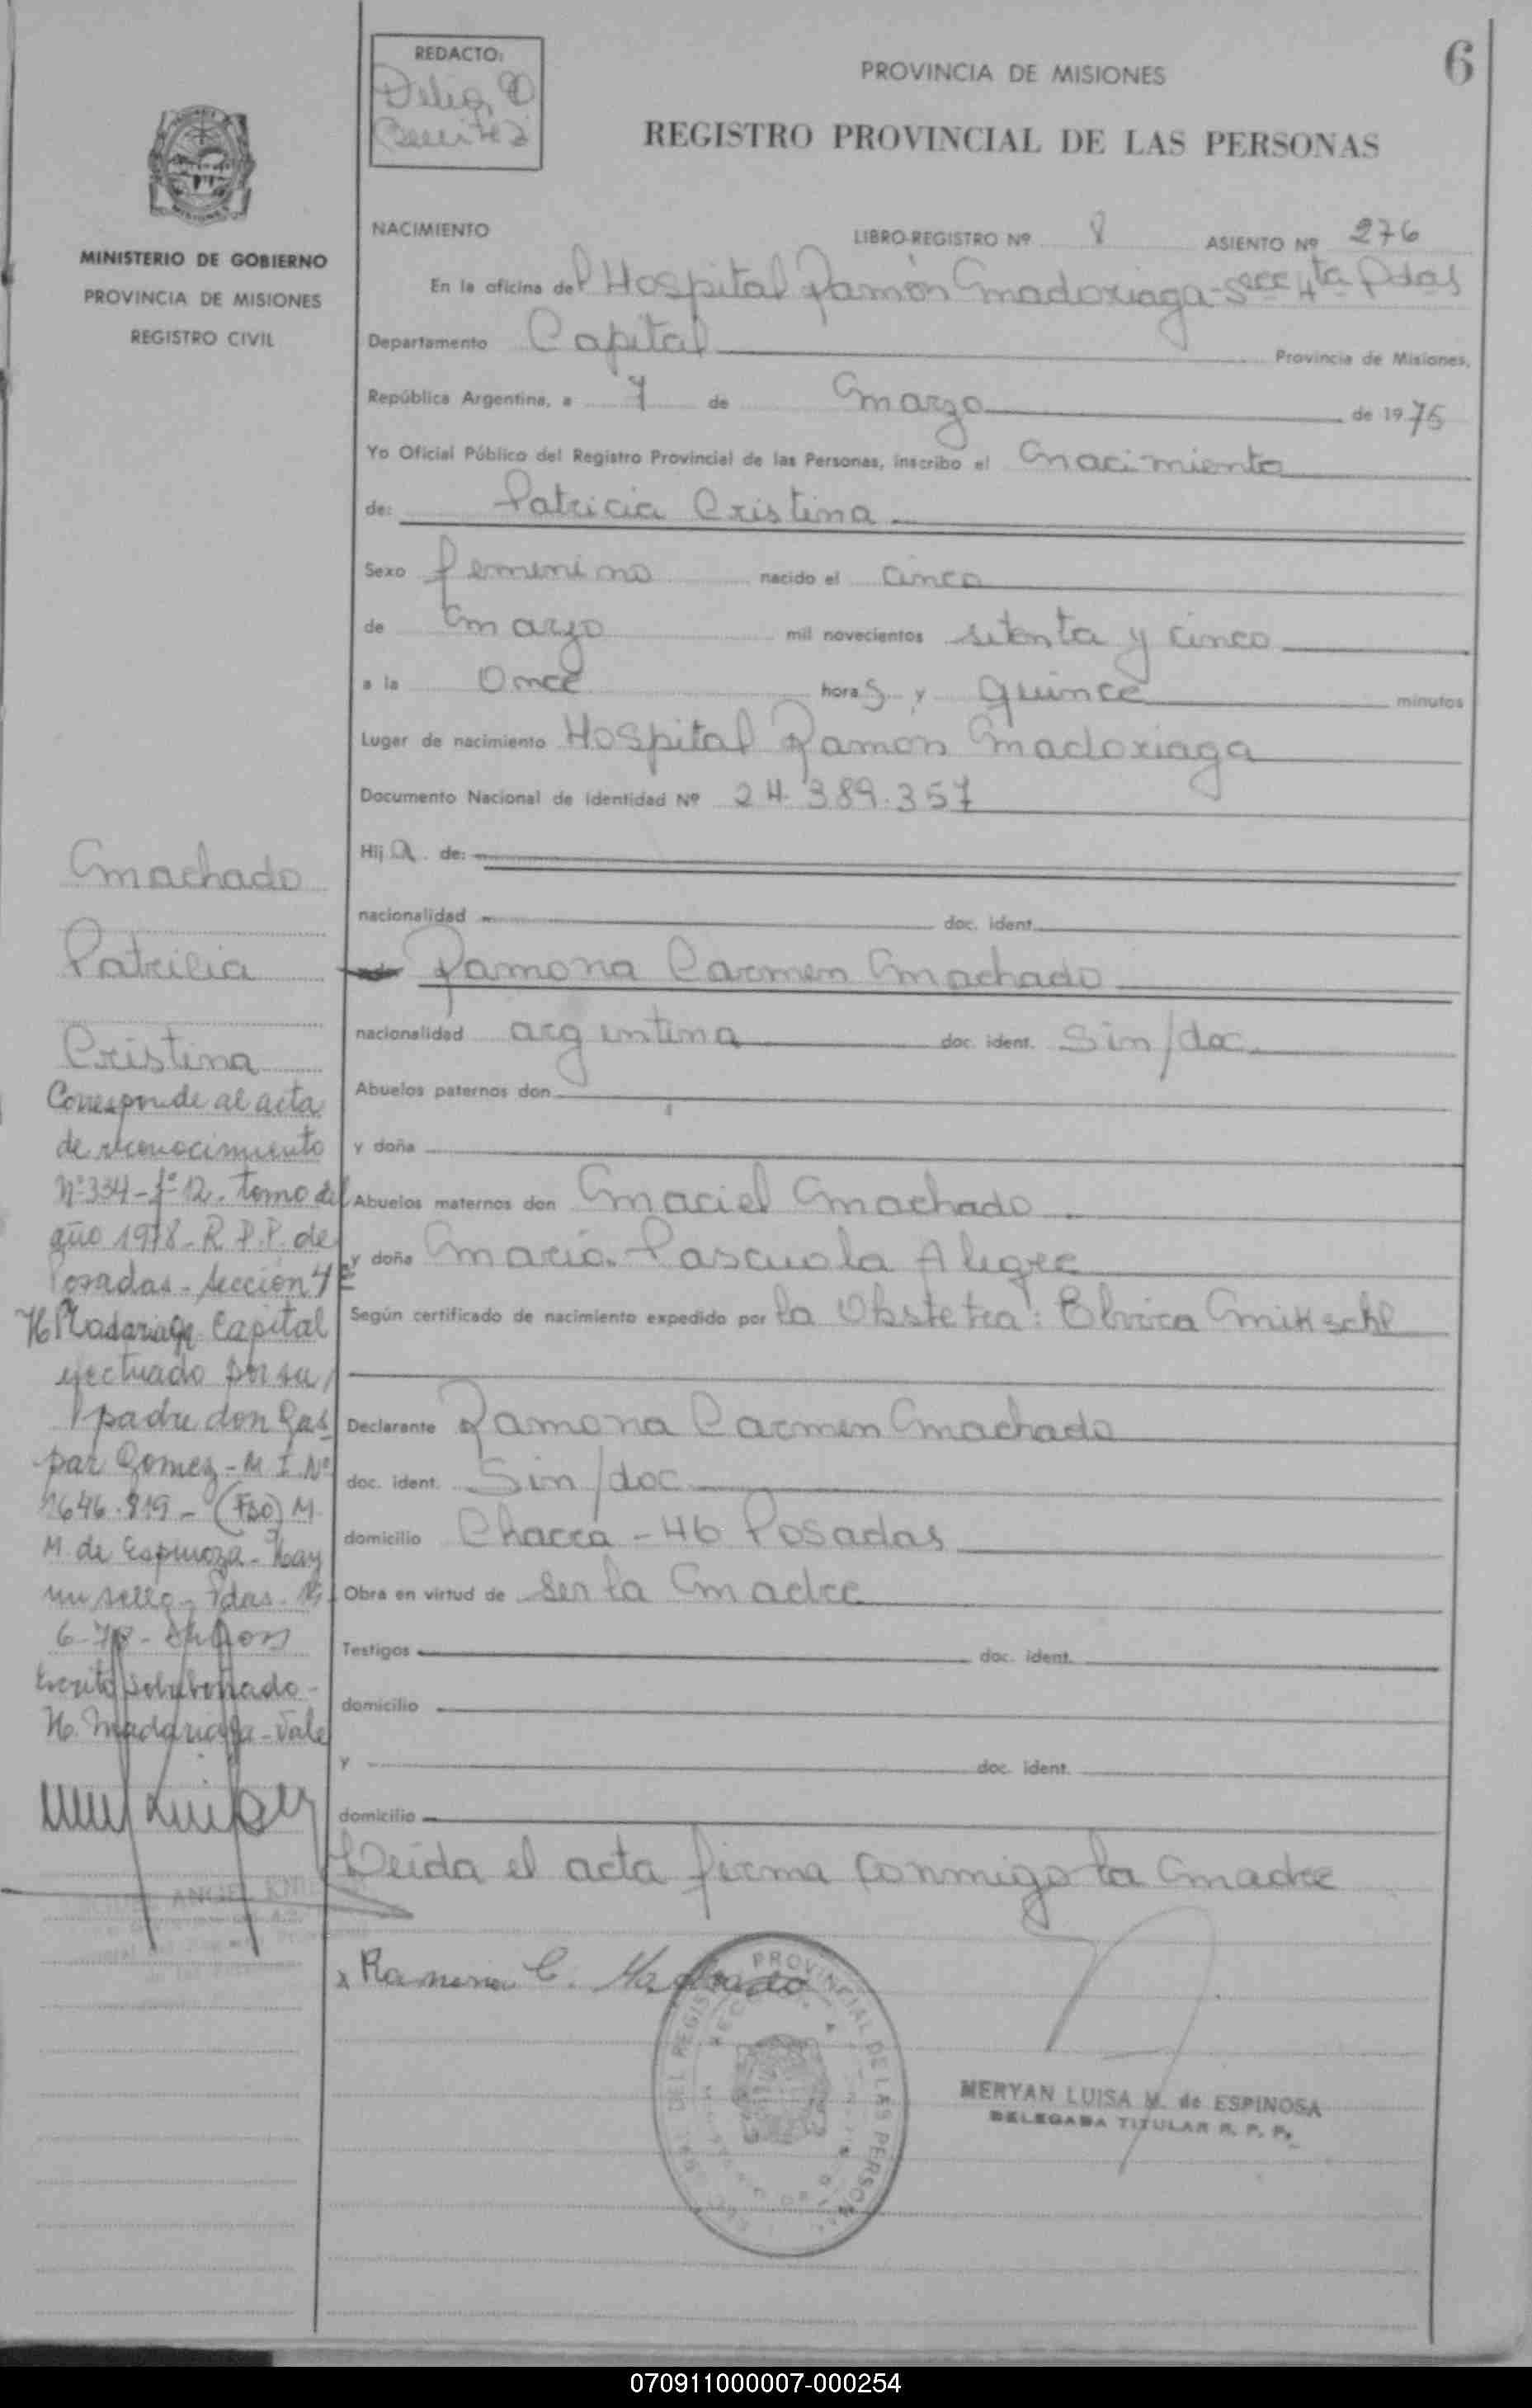 6
REDACTO:
Delia D
Benitez
PROVINCIA DE MISIONES
REGISTRO PROVINCIAL DE LAS PERSONAS
MINISTERIO DE GOBIERNO
PROVINCIA DE MISIONES
REGISTRO CIVIL
NACIMIENTO LIBRO-REGISTRO Nº 8 ASIENTO Nº 276
En la oficina del Hospital Ramón Madariaga - Secc 4ta Pdas
Departamento Capital Provincia de Misiones,
República Argentina, a 7 de Marzo de 1975
Yo Oficial Público del Registro Provincial de las Personas, inscribo el nacimiento
de: Patricia Cristina
Sexo femenino nacido el cinco
de marzo mil novecientos setenta y cinco
a la Once horas y quince minutos
Lugar de nacimiento Hospital Ramón Madariaga
Documento Nacional de Identidad Nº 24.389.357
Hija de:
nacionalidad doc. ident.
Ramona Carmen Machado
nacionalidad argentina doc. ident. Sin/doc.
Abuelos paternos don
y doña
Abuelos maternos don Maciel Machado
y doña María Pascuala Alegre
Según certificado de nacimiento expedido por la Obstetra: Elvira
Declarante Ramona Carmen Machado
doc. ident. Sin/doc
domicilio Chacra - 46 Posadas
Obra en virtud de ser la Madre
Testigos doc. ident.
domicilio
y doc. ident.
domicilio
Leida el acta firma conmigo la Madre
Ramona C. Machado
MERYAN LUISA M. de ESPINOSA
DELEGADA TITULAR R. P. P.
Machado
Patricia
Cristina
Corresponde al acta
de reconocimiento
Nº 334 - fº 12. tomo del
año 1978 - R.P.P. de
Posadas - Sección 4ª
H Madariaga Capital
efectuado por su
padre don Gas
par Gomez - M I Nº
1646.819 - (Fdo) M.
M. de Espinoza - Hay
un sello - Pdas.
6-78 -
Escrito sobreborrado -
H. Madariaga - Vale
PROVINCIAL DE LAS PERSONAS
070911000007-000254